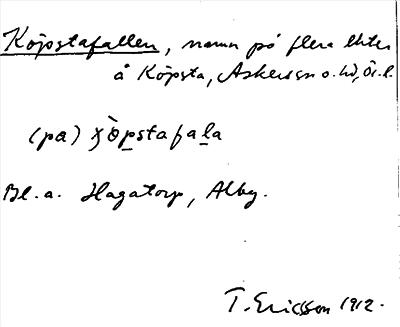 Köpstafallen, namn på flera lhter
å Köpsta, Askersen o. hd, Ör. l.
(pa) ɣ̀öpstafala
Bl. a. Hagatorp, Alby.
T. Ericsson 1912.